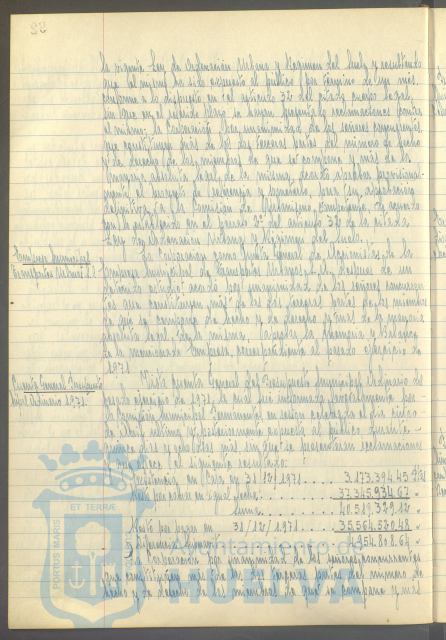 la vigente Ley de Ordenación Urbana y Régimen del Suelo y resultando
que al mismo ha sido expuesto al público por término de un mes
conforme a lo dispuesto en el artículo 32 del citado cuerpo legal,
sin que en el referido plazo se hayan presentado reclamaciones contra
el mismo; la Corporación, por unanimidad de los señores concurrentes,
que constituyen más de las dos terceras partes del número de hecho
y de derecho de los miembros de que se compone y más de la
mayoría absoluta legal, de la misma, acordó aprobar provisional-
mente el proyecto de referencia y someterlo, para su aprobación
definitiva, a la Comisión de Urbanismo competente, de acuerdo
con lo establecido en el párrafo 2º del artículo 32 de la citada
Ley de Ordenación Urbana y Régimen del Suelo.
Empresa Municipal
Transportes Urbanos S.A.
La Corporación como Junta General de Accionistas de la
Empresa Municipal de Transportes Urbanos, S.A. después de un
estudio acordó por unanimidad de los señores concurren-
tes que constituyen más de las dos terceras partes de los miembros
de que se compone de hecho y de derecho y más de la mayoría
absoluta legal de la misma, aprobar la Memoria y Balance
de la mencionada Empresa, correspondiente al pasado ejercicio de
1971.
Cuenta General Presupuesto
Ordinario 1971.
Vista cuenta General del Presupuesto Municipal Ordinario del
pasado ejercicio de 1971, la cual fue informada favorablemente por
la Comisión Municipal Permanente en sesión celebrada el día cinco
de último y posteriormente expuesta al público durante
quince días y ocho más sin que se presentaran reclamaciones
el siguiente resultado:
Existencia en Caja en 31/12/1971 3.173.394,45 Ptas
por cobrar en igual fecha 37.345.934,67 "
Suma 40.519.329,12 "
por pagar en 31/12/1971 35.564.520,48 "
Diferencia 4.954.808,64 "
La Corporación por unanimidad de los señores concurrentes
que constituyen más de las dos terceras partes del número de
hecho y de derecho de los miembros de que se compone y más
PORTUS MARIS
ET TERRÆ
Ayuntamiento de
HUELVA